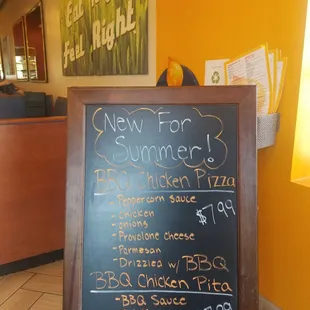 Eat
Feel Right
New For
Summer!
BBQ Chicken Pizza
- Peppercorn Sauce
- Chicken
- onions
$7.99
- Provolone Cheese
- Parmesan
- Drizzled w/ BBQ
BBQ Chicken Pita
- BBQ Sauce